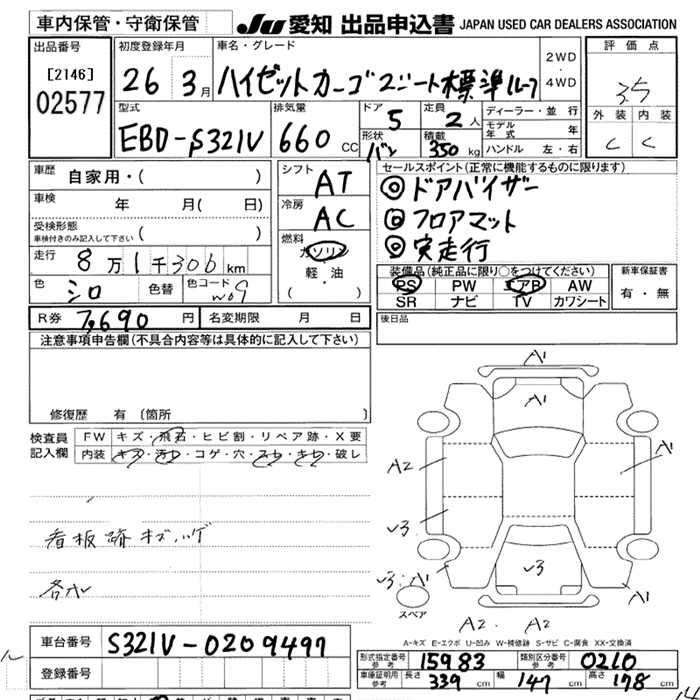 車内保管・守衛保管
JU 愛知 出品申込書 JAPAN USED CAR DEALERS ASSOCIATION
出品番号
[2146]
02577
初度登録年月
26 3月
車名・グレード
ハイゼットカーゴ 2シート標準ルーフ
2WD
4WD
評価点
3.5
外装 内装
C C
型式
EBD-S321V
排気量
660 CC
ドア
5
形状
バン
定員
2人
積載
350kg
ディーラー・並行
モデル年式 年
ハンドル 左・右
車歴 自家用・( )
車検 年 月( 日)
受検形態
車検付きのみ記入して下さい ( )
走行 8万1千306km
色 シロ 色替 色コード W09
シフト
AT
冷房
AC
燃料
ガソリン
軽・油
( )
セールスポイント(正常に機能するものに限ります)
◎ドアバイザー
◎フロアマット
◎実走行
装備品(純正品に限り○をつけてください)
PS PW エアB AW
SR ナビ TV カワシート
新車保証書
有・無
R券 7,690円 名変期限 月 日
後日品
注意事項申告欄(不具合内容等は具体的に記入して下さい)
修復歴 有 〔箇所 〕
検査員
記入欄
FW キズ・飛石・ヒビ割・リペア跡・X要
内装 キズ・汚レ・コゲ・穴・スレ・キレ・破レ
看板跡 キズ、ハゲ
A1
A1
A2
A1
√3
√3
√3 A1
A1
スペア
A2 A2
A-キズ E-エクボ U-凹み W-補修跡 S-サビ C-腐食 XX-交換済
車台番号 S321V-0209497
登録番号
型式指定番号 参考 15983 類別区分番号 参考 0210
車庫証明用 参考 長さ 339cm 幅 147cm 高さ 178cm